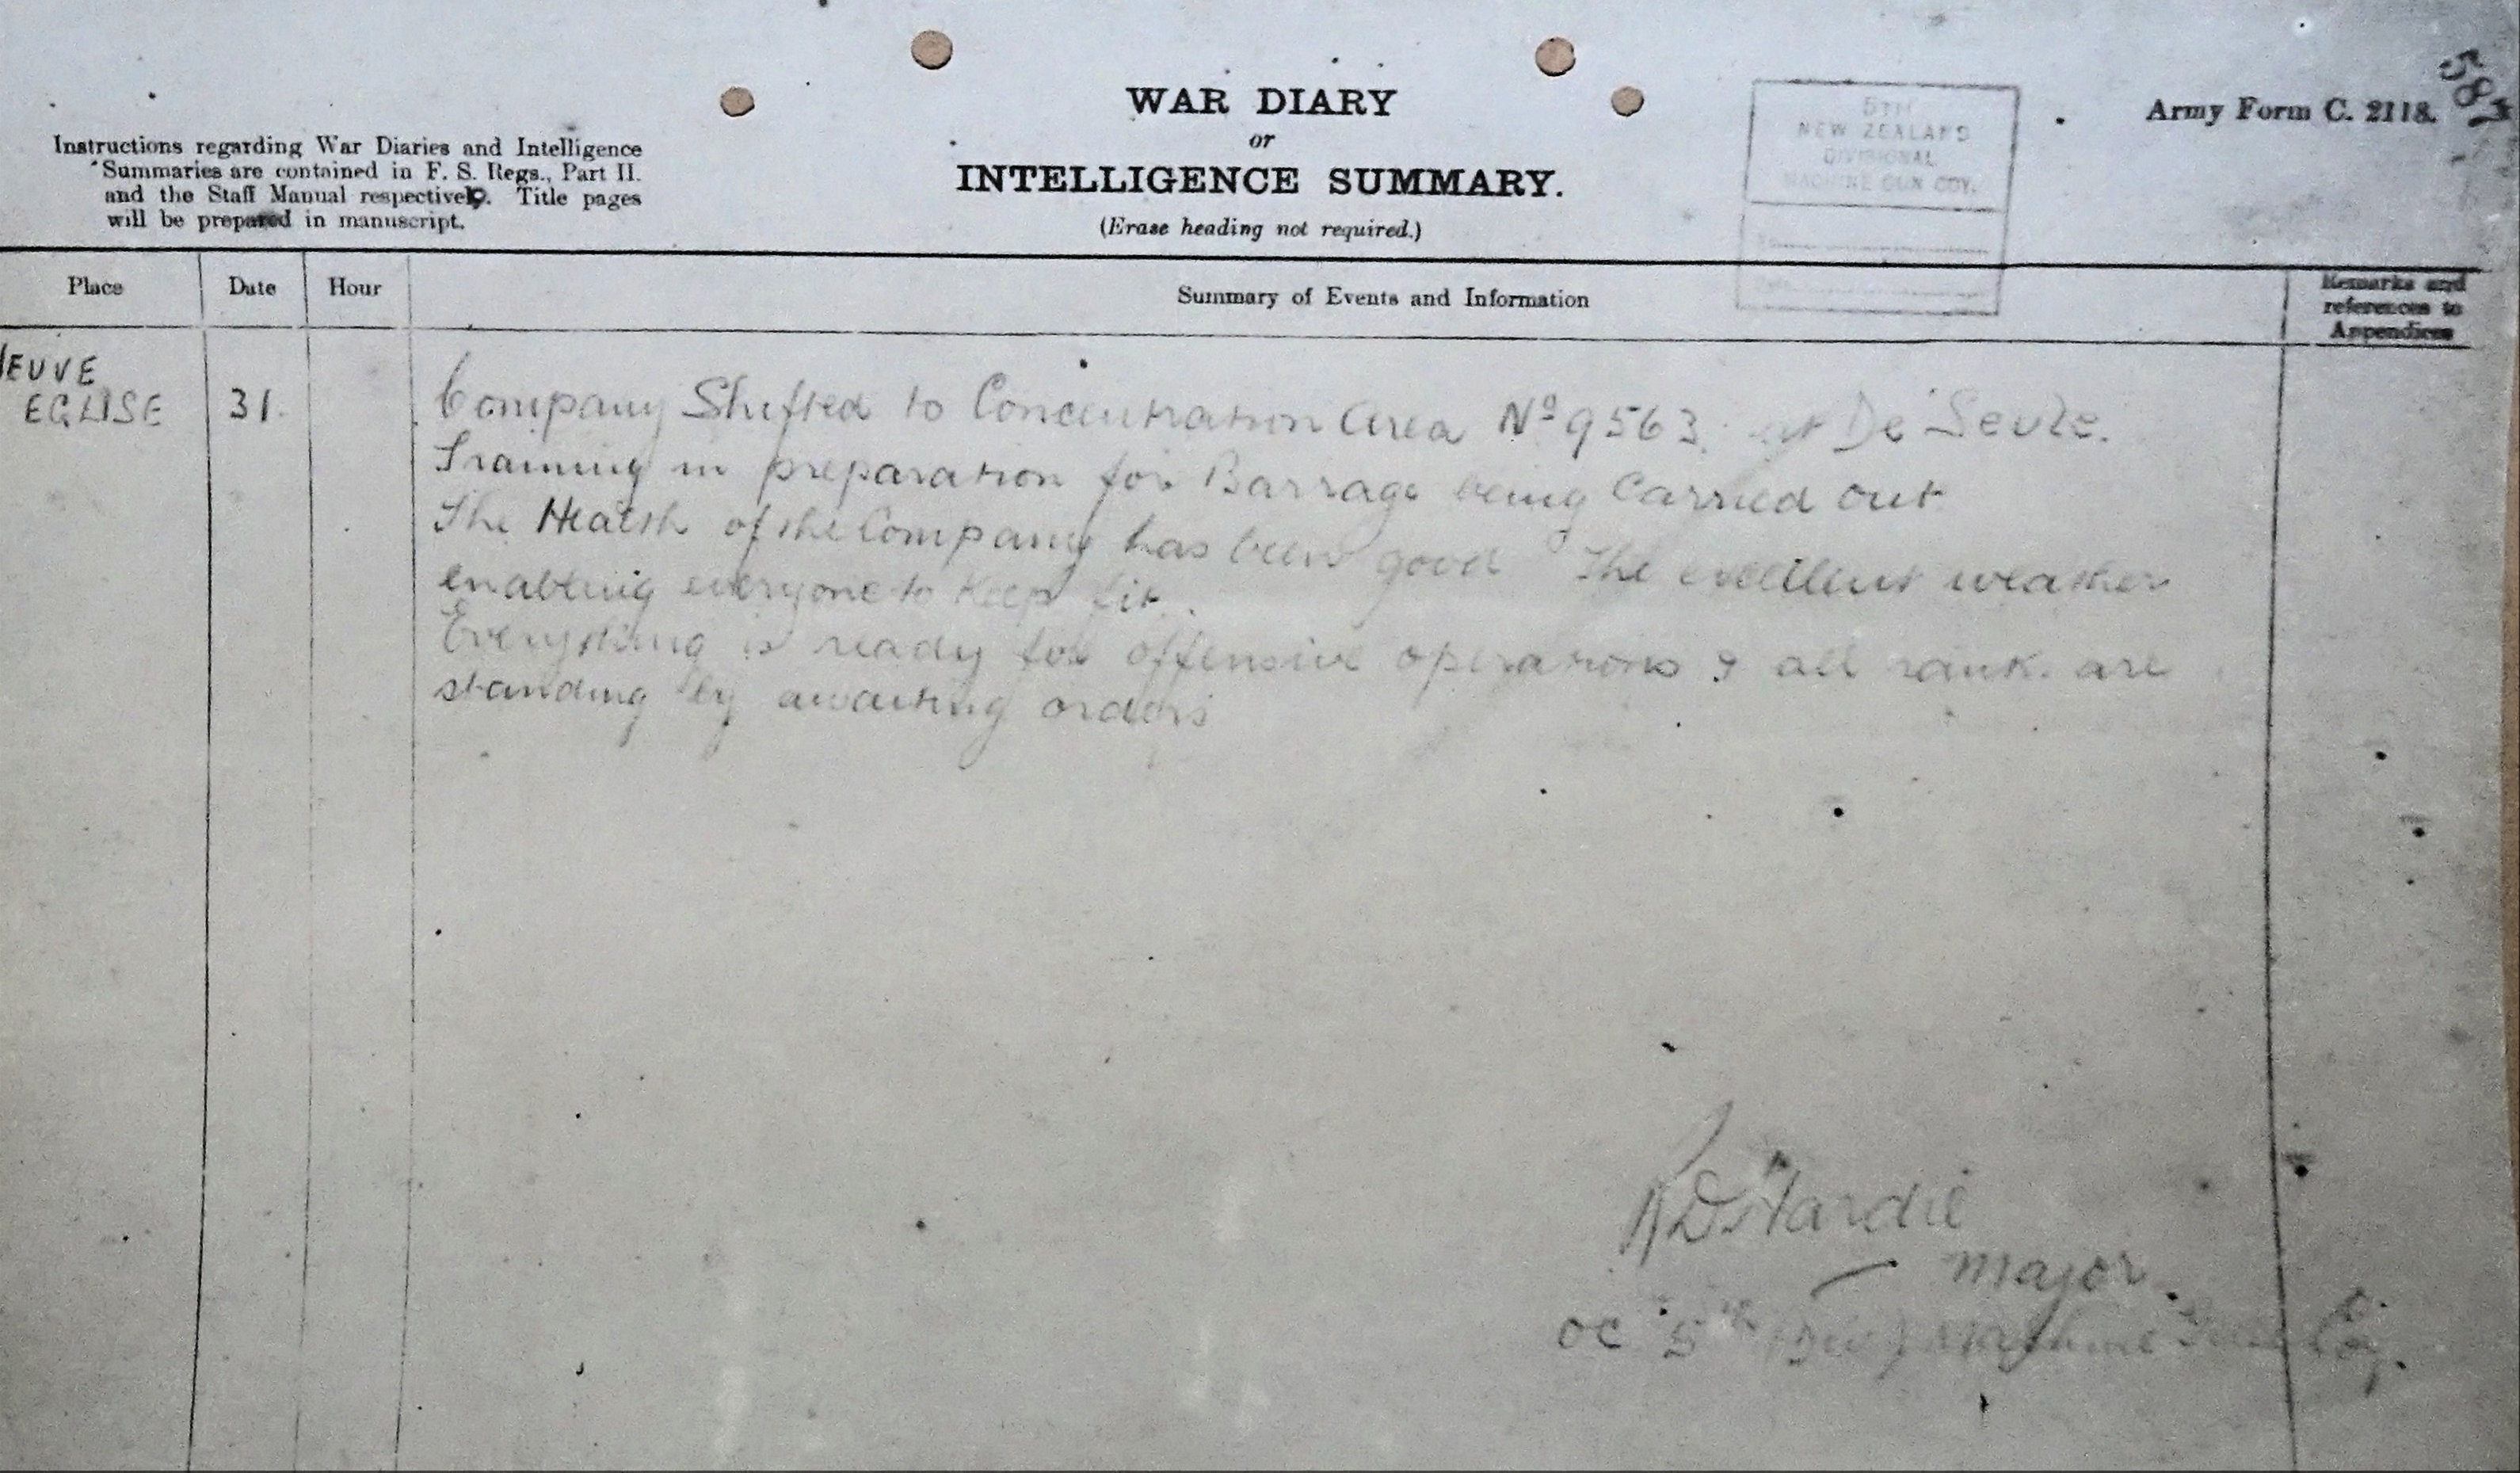 WAR DIARY
or
INTELLIGENCE SUMMARY.
(Erase heading not required.)
Instructions regarding War Diaries and Intelligence
Summaries are contained in F. S. Regs., Part II.
and the Staff Manual respectively. Title pages
will be prepared in manuscript.
5TH
NEW ZEALAND
DIVISIONAL
MACHINE GUN COY.
Army Form C. 2118.
Place
Date
Hour
Summary of Events and Information
Remarks and
references to
Appendices
EUVE
EGLISE
31.
Company Shifted to Concentration Area Nº 9563. at De Seule.
Training in preparation for Barrage being carried out
The Health of the Company has been good The excellent weather
enabling everyone to keep fit.
Everything is ready for offensive operations & all rank. are
standing by awaiting orders
RD Hardie
Major.
OC 5th (Div) Machine Gun Coy.